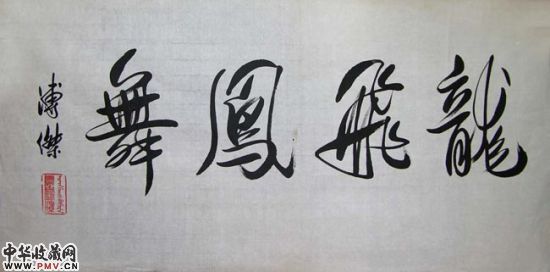 龍飛鳳舞
溥傑
中华收藏网
WWW.PMV.CN